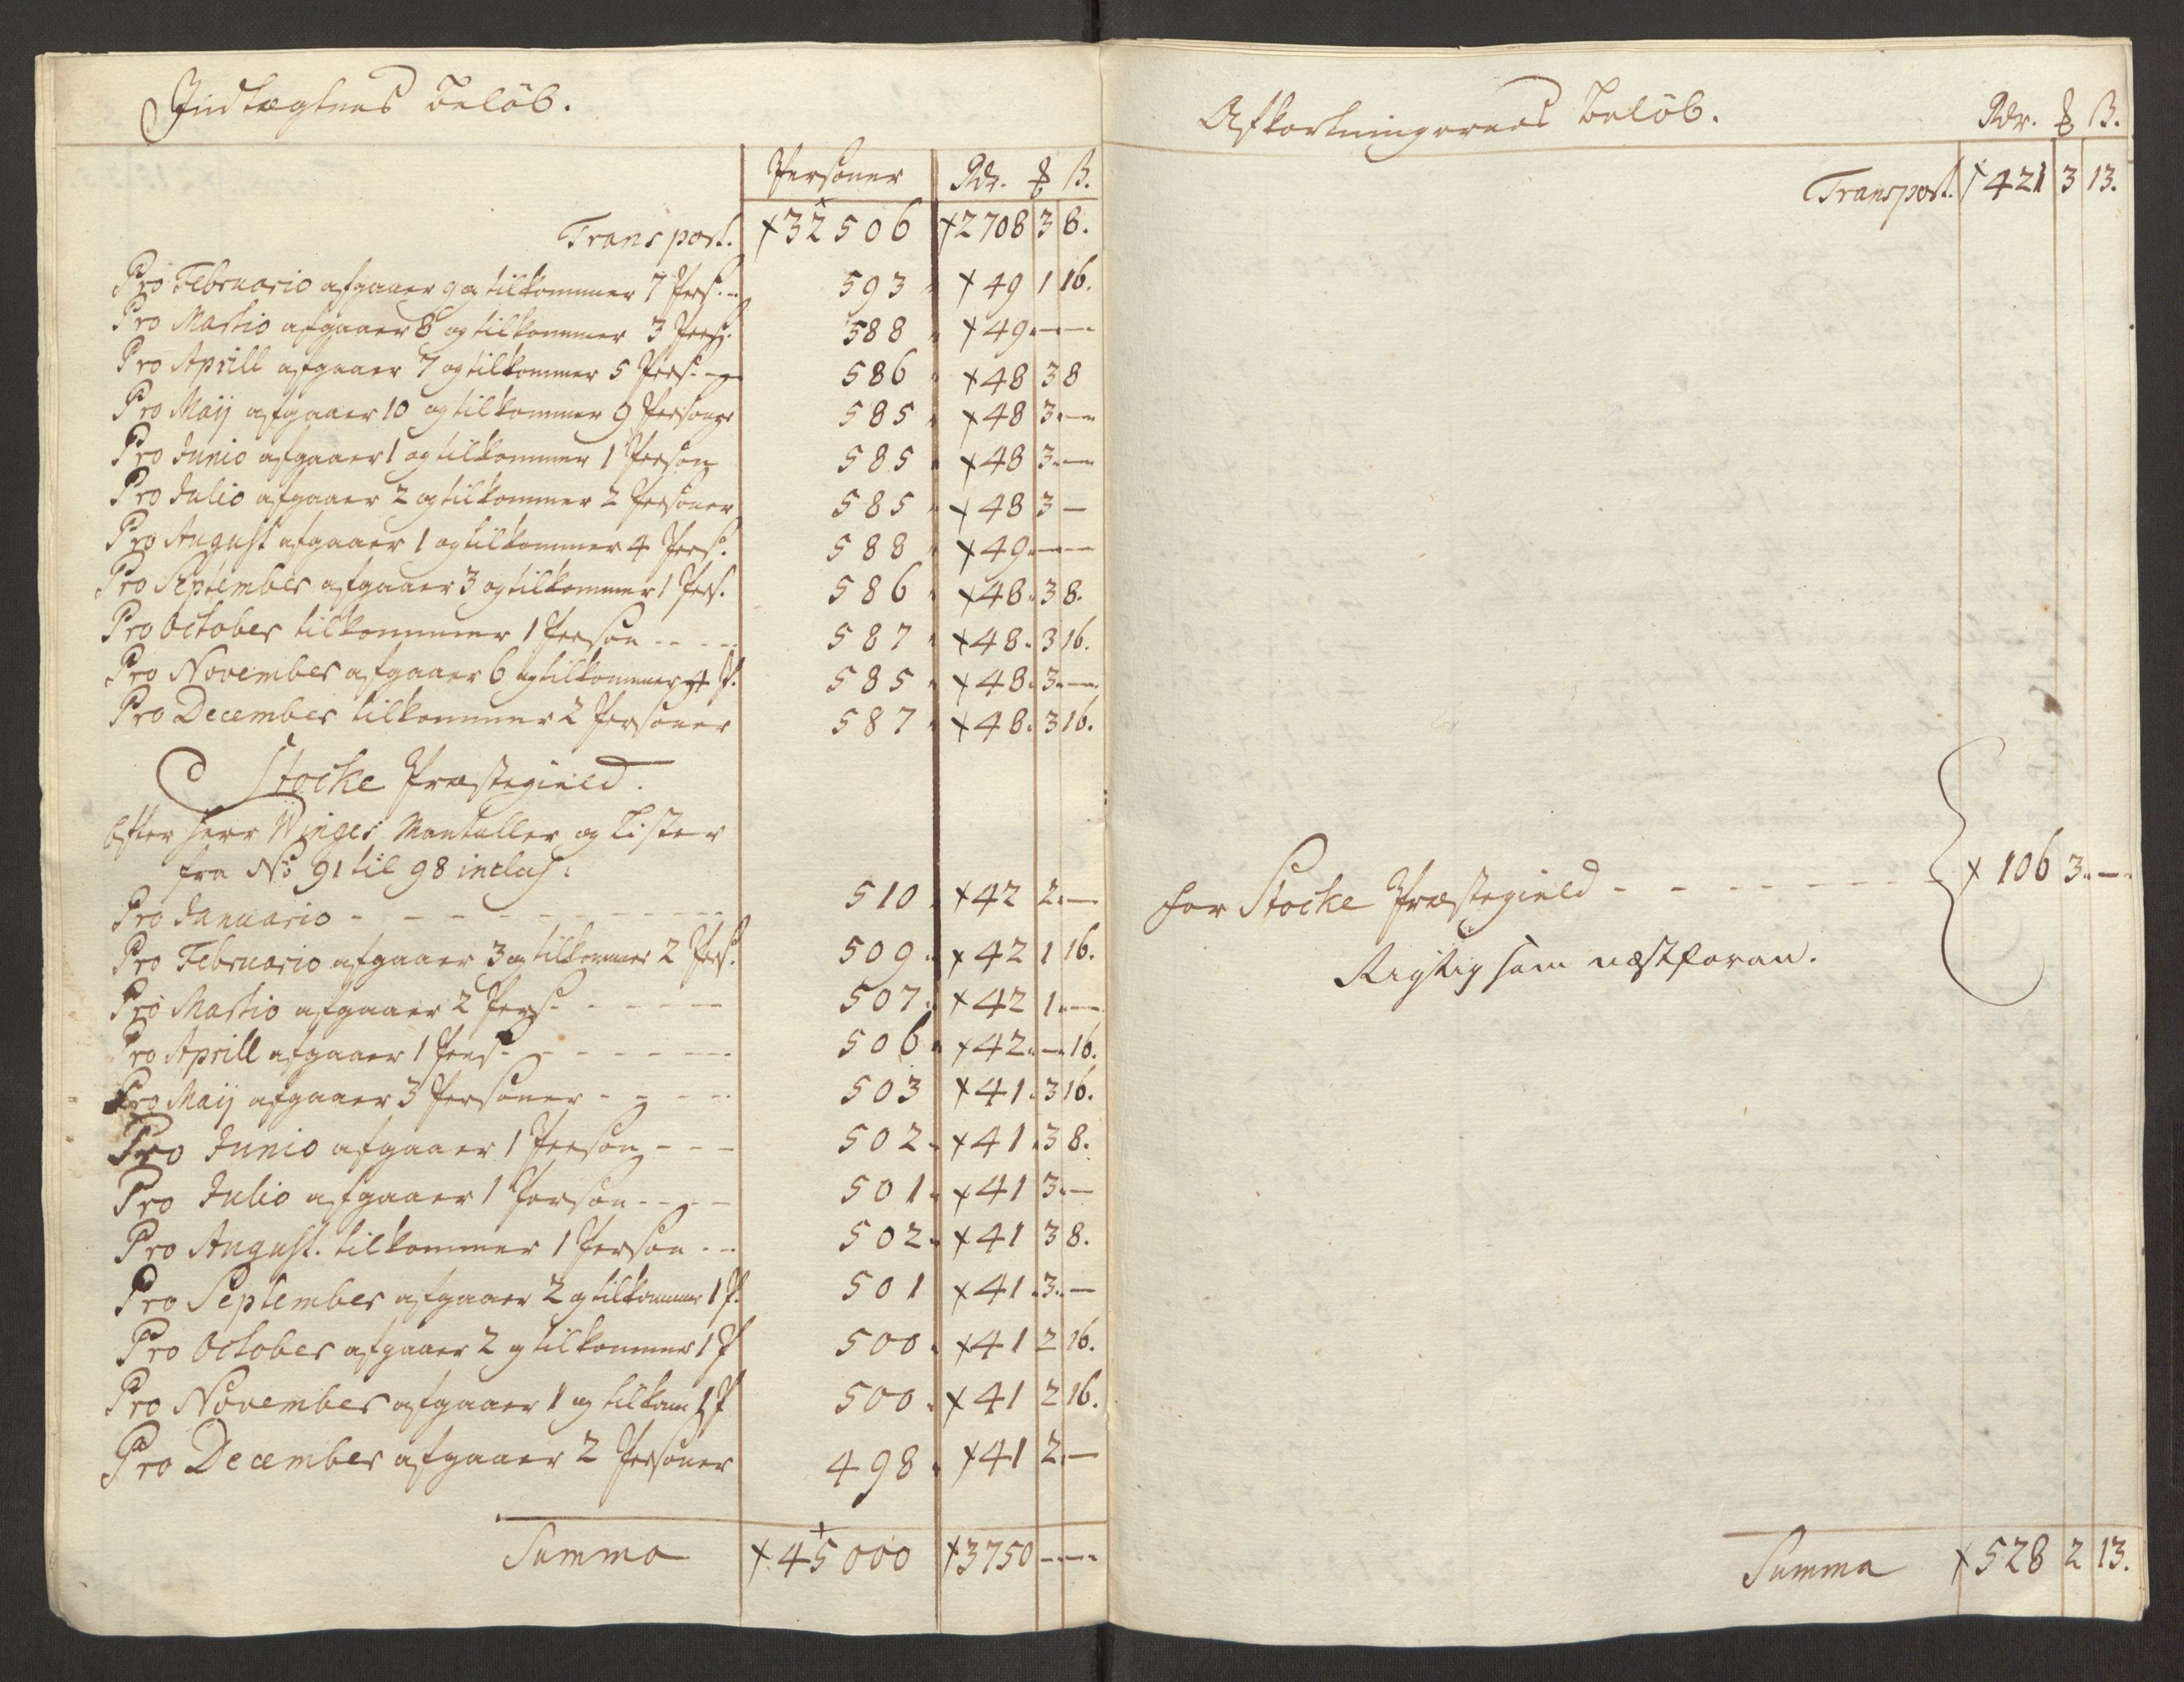 Indtægtens Beløb.
Personer Rdr. ß.
Transport. 32506 2708 3 8.
Pro Februario afgaaer 9 og tilkommer 7 Pers. 593 49 1 16.
Pro Martio afgaaer 8 og tilkommer 3 Pers. 588 49 - -
Pro Aprill afgaaer 7 og tilkommer 5 Pers. 586 48 3 8
Pro Maij afgaaer 10 og tilkommer 9 Personer 585 48 3 -
Pro Junio afgaaer 1 og tilkommer 1 Person 585 48 3 -
Pro Julio afgaaer 2 og tilkommer 2 Personer 585 48 3 -
Pro August afgaaer 1 og tilkommer 4 Pers. 588 49 - -
Pro September afgaaer 3 og tilkommer 1 Pers. 586 48 3 8.
Pro October tilkommer 1 Person 587 48 3 16.
Pro November afgaaer 6 og tilkommer 4 P. 585 48 3 -
Pro December tilkommer 2 Personer 587 48 3 16.
Stocke Præstegield.
Efter Herr Winges Mantaller og Lister
fra No 91 til 98 inclus:
Pro Januario - - - 510 42 2 -
Pro Februario afgaaer 3 og tilkommer 2 Pers. 509 42 1 16.
Pro Martio afgaaer 2 Pers. - - - 507 42 1 -
Pro Aprill afgaaer 1 Pers. - - - 506 42 - 16.
Pro Maij afgaaer 3 Personer - - - 503 41 3 16.
Pro Junio afgaaer 1 Person - - - 502 41 3 8.
Pro Julio afgaaer 1 Person - - - 501 41 3 -
Pro August. tilkommer 1 Person - - 502 41 3 8.
Pro September afgaaer 2 og tilkommer 1 P. 501 41 3 -
Pro October afgaaer 2 og tilkommer 1 P 500 41 2 16.
Pro November afgaaer 1 og tilkom 1 P 500 41 2 16.
Pro December afgaaer 2 Personer 498 41 2 -
Summa 45000 3750 - -
Afkortningernes Beløb. Rdr. ß.
Transport. 421 3 13.
for Stocke Præstegield - - - 106 3 -
Rigtig som næstforan.
Summa 528 2 13.